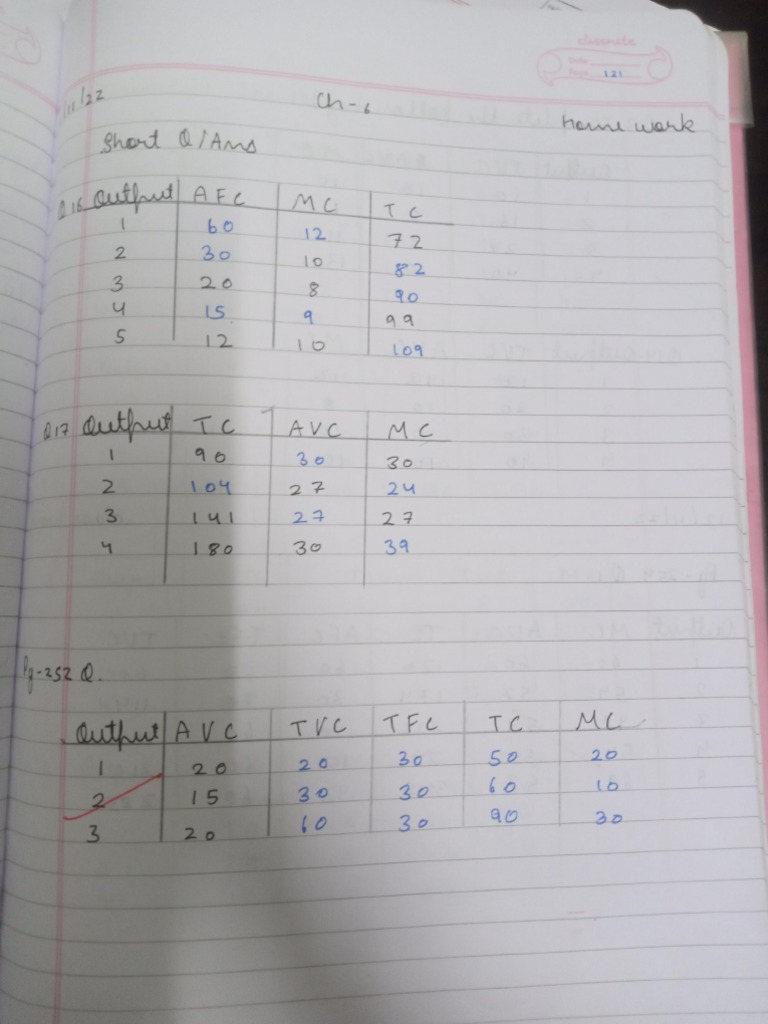 classmate
Date
Page 121
/11/22
Ch-6
home work
Short Q/Ans
Q16 Output AFC MC TC
1 60 12 72
2 30 10 82
3 20 8 90
4 15 9 99
5 12 10 109
Q17 Output TC AVC MC
1 90 30 30
2 104 27 24
3 141 27 27
4 180 30 39
Pg-252 Q.
Output AVC TVC TFC TC MC
1 20 20 30 50 20
2 15 30 30 60 10
3 20 60 30 90 30